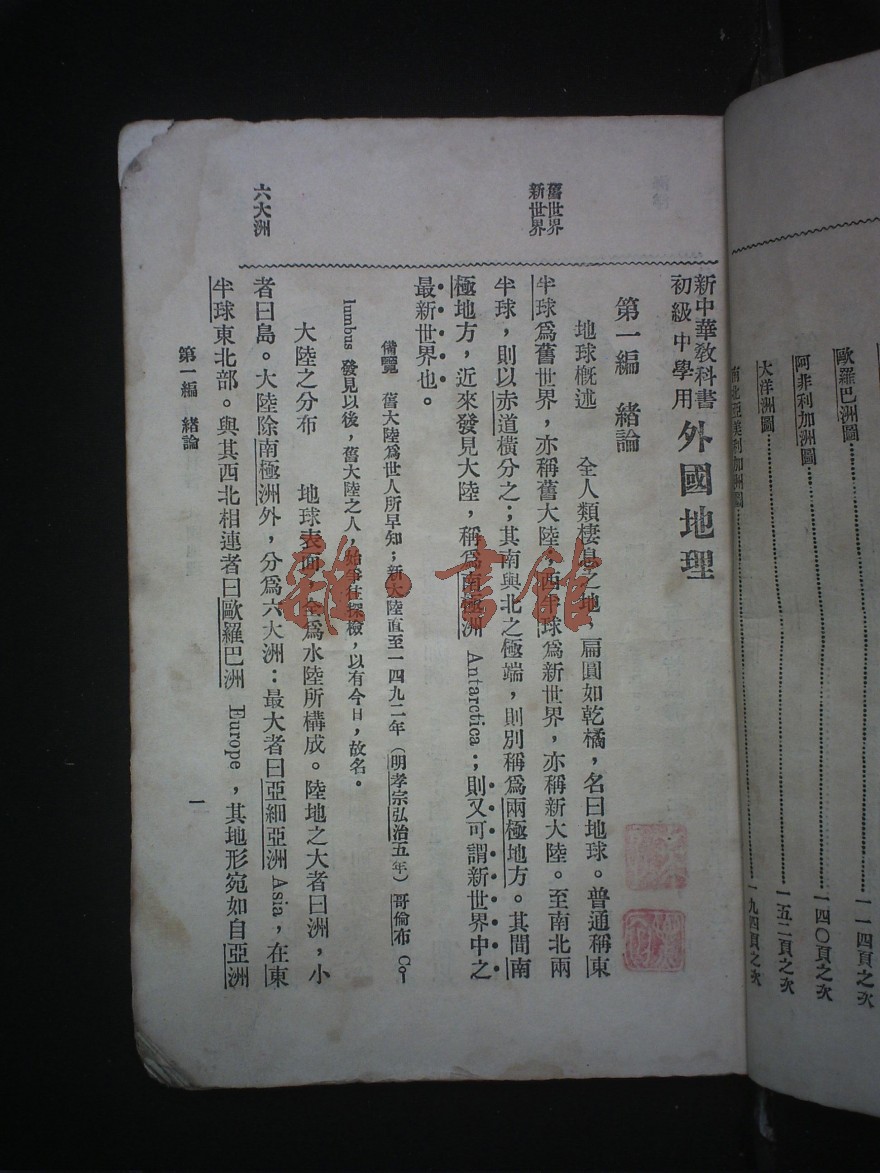 歐羅巴洲圖⋯⋯一一四頁之次
阿非利加洲圖⋯⋯一四〇頁之次
大洋洲圖⋯⋯一五二頁之次
南北亞美利加洲圖⋯⋯一九四頁之次
新中華教科書
初級中學用
外國地理
第一編 緒論
舊世界
新世界
地球槪述 全人類棲息之地,扁圓如乾橘,名曰地球。普通稱東
半球爲舊世界,亦稱舊大陸;西半球爲新世界,亦稱新大陸。至南北兩
半球,則以赤道橫分之;其南與北之極端,則別稱爲兩極地方。其間南
極地方,近來發見大陸,稱爲南極洲 Antarctica;則又可謂新世界中之
最新世界也。
備覽 舊大陸爲世人所早知;新大陸直至一四九二年(明孝宗弘治五年)哥倫布 Co-
lumbus 發見以後,舊大陸之人,始爭往探檢,以有今日,故名。
大陸之分布 地球表面,全爲水陸所構成。陸地之大者曰洲,小
六大洲
者曰島。大陸除南極洲外,分爲六大洲:最大者曰亞細亞洲 Asia,在東
半球東北部。與其西北相連者曰歐羅巴洲 Europe,其地形宛如自亞洲
第一編 緒論
一
雜·書館